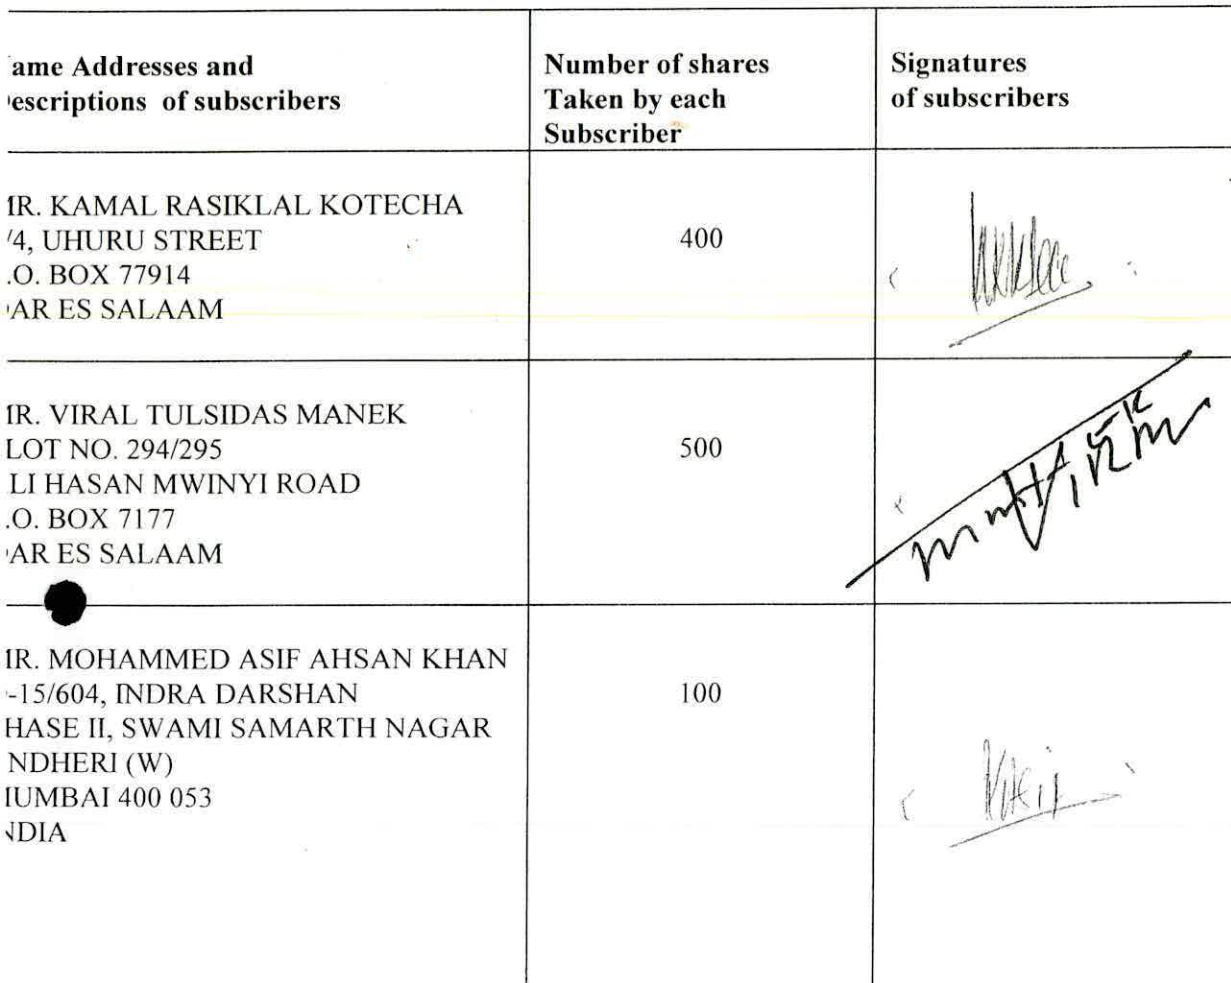 ame Addresses and
escriptions of subscribers
Number of shares
Taken by each
Subscriber
Signatures
of subscribers
IR. KAMAL RASIKLAL KOTECHA
/4, UHURU STREET
.O. BOX 77914
AR ES SALAAM
400
IR. VIRAL TULSIDAS MANEK
LOT NO. 294/295
LI HASAN MWINYI ROAD
.O. BOX 7177
AR ES SALAAM
500
IR. MOHAMMED ASIF AHSAN KHAN
-15/604, INDRA DARSHAN
HASE II, SWAMI SAMARTH NAGAR
NDHERI (W)
IUMBAI 400 053
NDIA
100